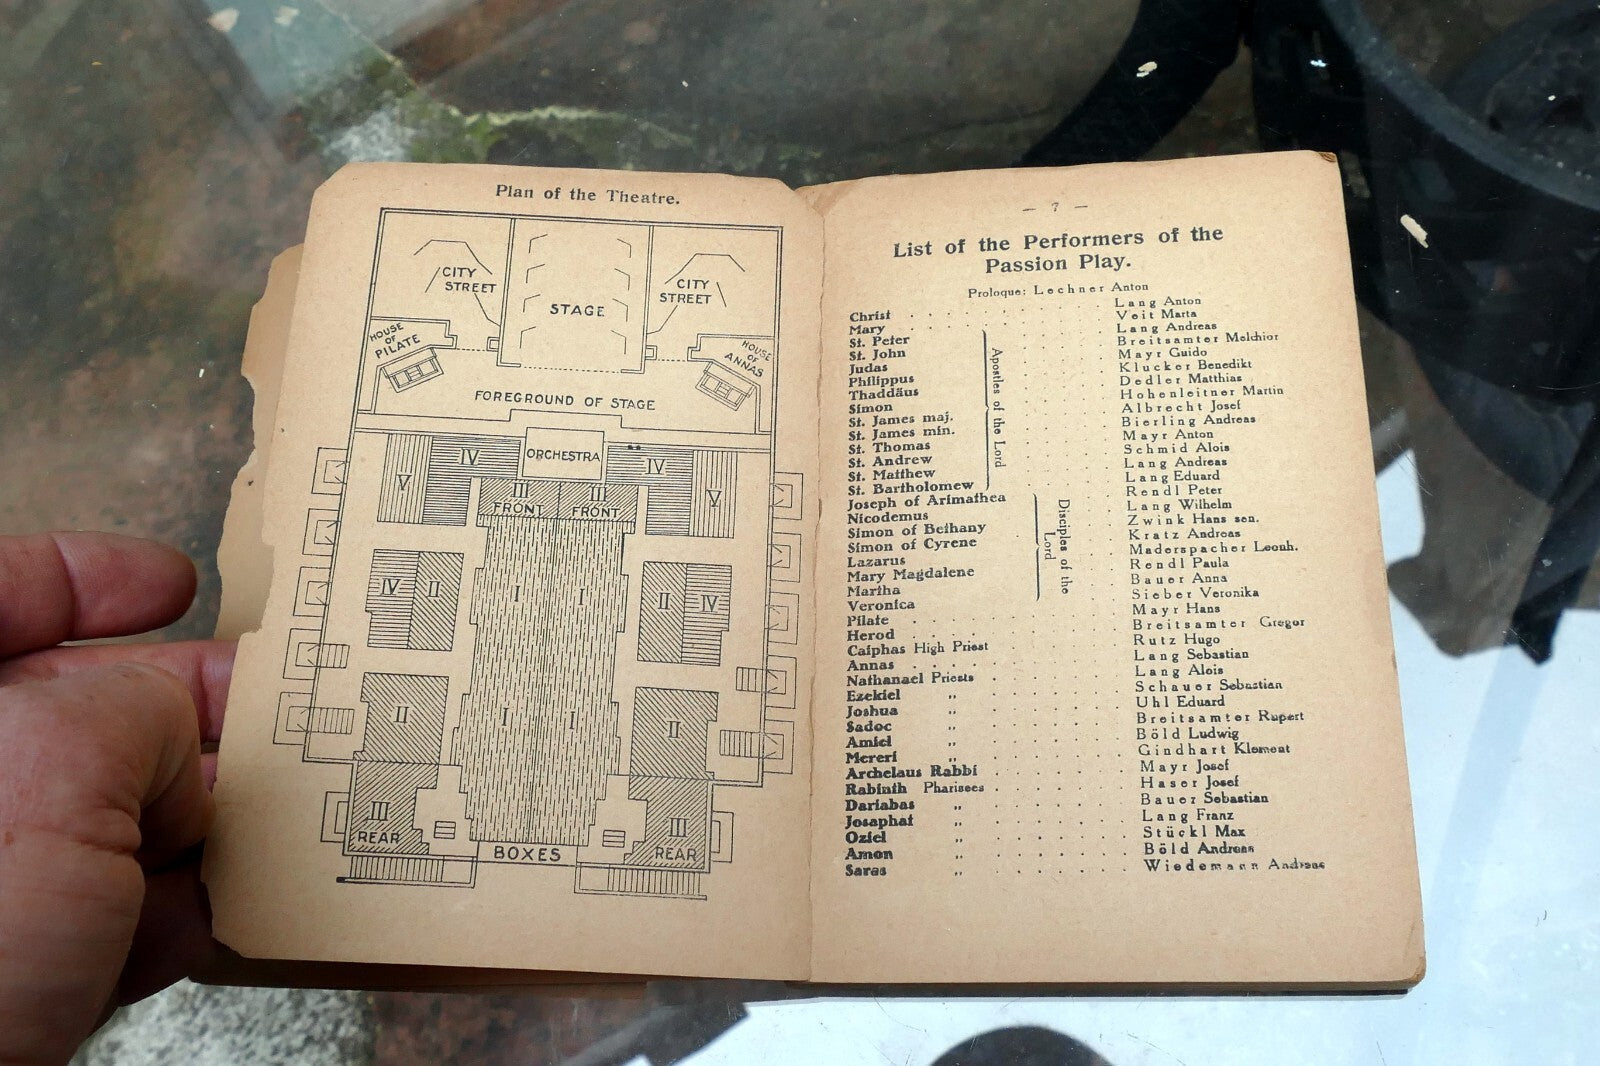 Plan of the Theatre.
CITY
STREET
STAGE
CITY
STREET
HOUSE
OF
PILATE
HOUSE
OF
ANNAS
FOREGROUND OF STAGE
V
IV
ORCHESTRA
IV
V
III
FRONT
III
FRONT
IV
II
I
I
II
IV
II
I
I
II
III
REAR
BOXES
III
REAR
— 7 —
List of the Performers of the
Passion Play.
Prologue: Lechner Anton
Christ Lang Anton
Mary Veit Marta
St. Peter Lang Andreas
St. John Breitsamter Melchior
Judas Mayr Guido
Philippus Klucker Benedikt
Thaddäus Dedler Matthias
Simon Hohenleitner Martin
St. James maj. Albrecht Josef
St. James min. Bierling Andreas
St. Thomas Mayr Anton
St. Andrew Schmid Alois
St. Matthew Lang Andreas
St. Bartholomew Lang Eduard
Apostles of the Lord
Joseph of Arimathea Rendl Peter
Nicodemus Lang Wilhelm
Simon of Bethany Zwink Hans sen.
Simon of Cyrene Kratz Andreas
Lazarus Maderspacher Leonh.
Mary Magdalene Rendl Paula
Martha Bauer Anna
Veronica Sieber Veronika
Disciples of the
Lord
Pilate Mayr Hans
Herod Breitsamter Gregor
Caiphas High Priest Rutz Hugo
Annas Lang Sebastian
Nathanael Priests Lang Alois
Ezekiel „ Schauer Sebastian
Joshua „ Uhl Eduard
Sadoc „ Breitsamter Rupert
Amiel „ Böld Ludwig
Mereri „ Gindhart Klement
Archelaus Rabbi Mayr Josef
Rabinth Pharisees Haser Josef
Dariabas „ Bauer Sebastian
Josaphat „ Lang Franz
Oziel „ Stückl Max
Amon „ Böld Andreas
Saras „ Wiedemann Andreas